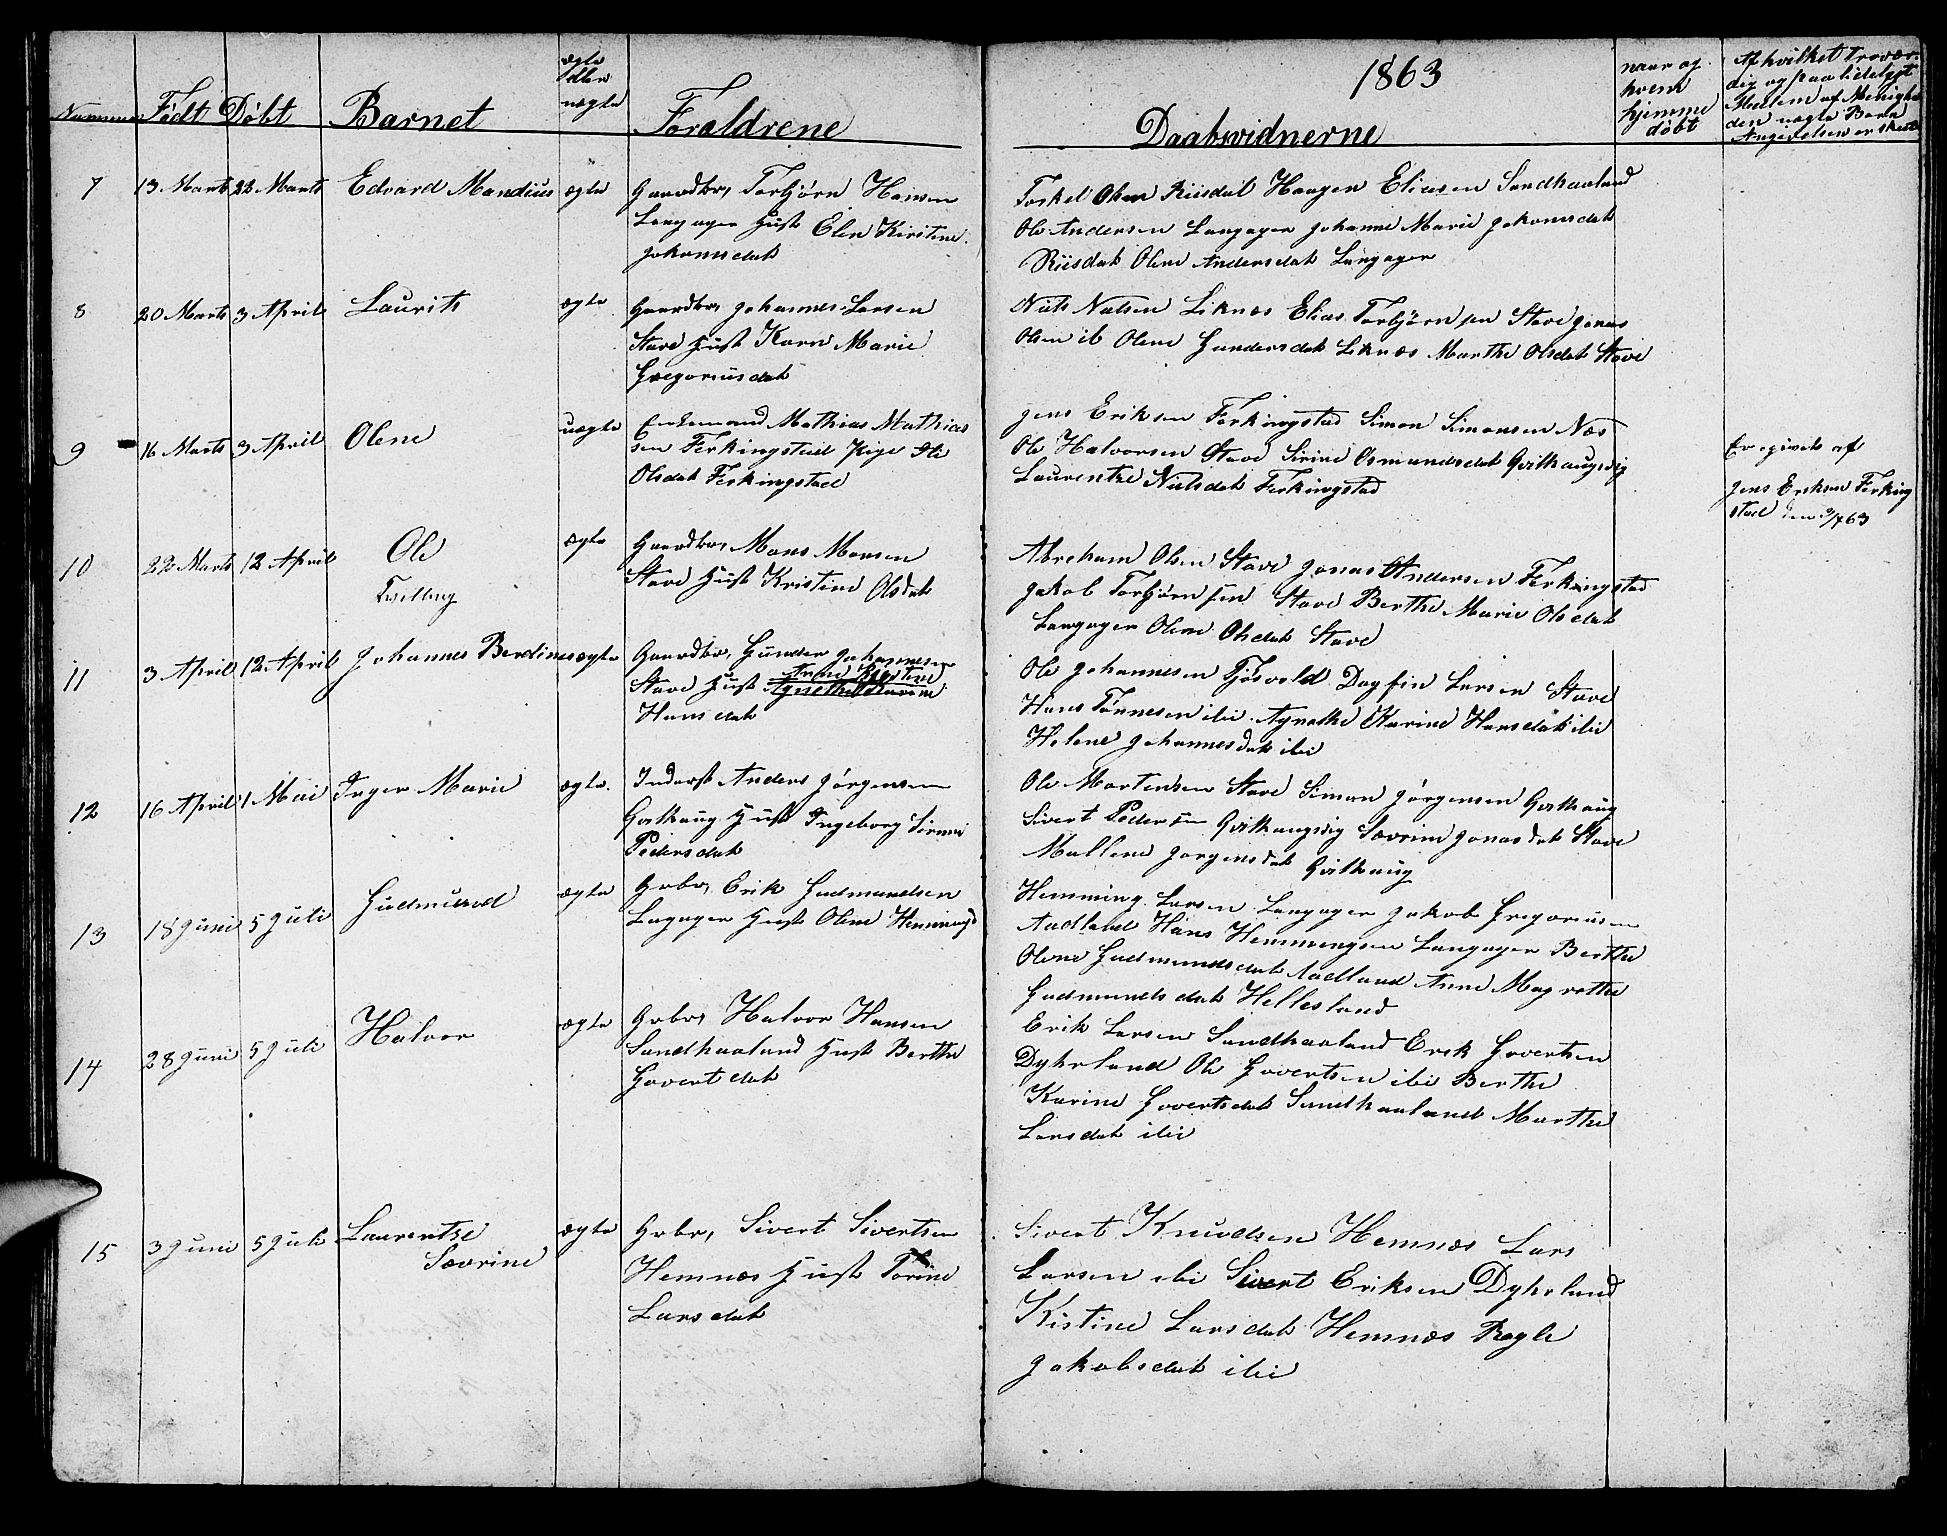 1863
Nummer Født Døbt Barnet ægte eller uægte Foraldrene
Daabsvidnerne
naar og hvem hjemme døbt
Af hvilket trovær-
dig og paalideligt
Medlem af Menighe
den uægte Børn
Angivelsen er skeet
7 13 Marts 22 Marts Edvard Mandius ægte Gaardbr, Torbjørn Hansen
Langager Hust Elen Kirstine
Johannesdat
Torkel Olsen Riisdal Haagen Eliasen Sandhaaland
Ole Andersen Langager Johanne Marie Johannesdat
Riisdal Olene Andersdat Langager
8 20 Marts 3 April Laurits ægte Gaardbr, Johannes Larsen
Stave Hust Karn Marie
Gregoriusdat
Niels Nielsen Liknæs Elias Torbjørnsen Stave Jonas
Olsen ib Olene Gundersdat Liknæs Marthe Olsdat Stave
9 16 Marts 3 April Olene uægte Enkemand Mathias Mathias
sen Ferkingstad Pige Eli
Olsdat Ferkingstad
Jens Eriksen Ferkingstad Simon Simonsen Næs
Ole Halvorsen Stave Sirine Osmundsdat Qvilhaugsvig
Laurentze Nielsdat Ferkingstad
Er egivet af
Jens Eriksen Ferking
stad den 3/4 63
10 22 Marts 12 April Ole
Tvilling
ægte Gaardbr, Mons Monsen
Stave Hust Kristine Olsdat
Abreham Olsen Stave Jonas Andersen Ferkingstad
Jakob Torbjørnsen Stave Berthe Marie Olsdat
Langager Olene Olsdat Stave
11 3 April 12 April Johannes Berdines ægte Gaardbr, Gunder Johannesen
Stave Hust Anne Kjestine
Agnethe Karine
Hansdat
Ole Johannesen Tjøsvold Dagfin Larsen Stave
Hans Tønnesen ibi Agnathe Karine Hansdat ibi
Helene Johannesdat ibi
12 16 April 1 Mai Inger Marie ægte. Inderst Anders Jørgensen
Qvilhaug Hust Ingeborg Sirine
Pedersdat
Ole Mortensen Stave Simon Jørgensen Qvilhaug
Sivert Pedersen Qvilhaugsvig Sævrine Jonasdat Stave
Mallene Jørgensdat Qvilhaug
13 18 Juni 5 Juli Gudmund ægte Grbr, Erik Gudmundsen
Lagager Hust Olene Hemmingsd
Hemming Larsen Langager Jakob Gregoriusen
Aadland Hans Hemmengsen Langager Berthe
Olene Gudmundsdat Aadland Anne Magrethe
Gudmundsdat Hellesland
14 28 Juni 5 Juli Halvor ægte Grbr, Halvor Hansen
Sandhaaland Hust Berthe
Govertdat
Erik Larsen Sandhaaland Erek Govertsen
Dyhrland Ole Govertsen ibi Berthe
Karine Govertsdat Sandhaaland Marthe
Larsdat ibi
15 3 Juni 5 Juli Laurentze
Sævrine
ægte Grbr, Sivert Sivertsen
Hemnæs Hust Torine
Larsdat
Sivert Knudsen Hemnæs Lars
Larsen ibi Sivert Eriksen Dyhrland
Kistine Larsdat Hemnæs Ragle
Jakobsdat ibi